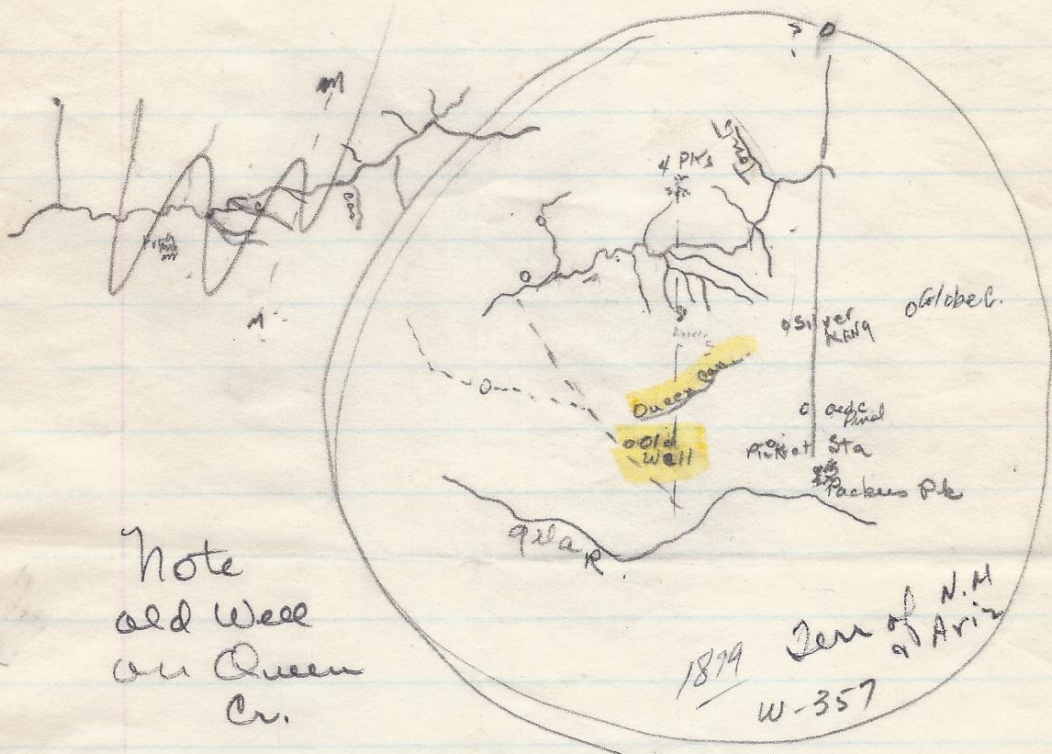 M
? O
4 PKs
Can
M
Silver
King
Globe C.
Queen Can
Old
Well
Pinal
Picket Sta
Gila R.
Note
old Well
on Queen
Cr.
1879
Terr of N.M
& Ariz
W-357